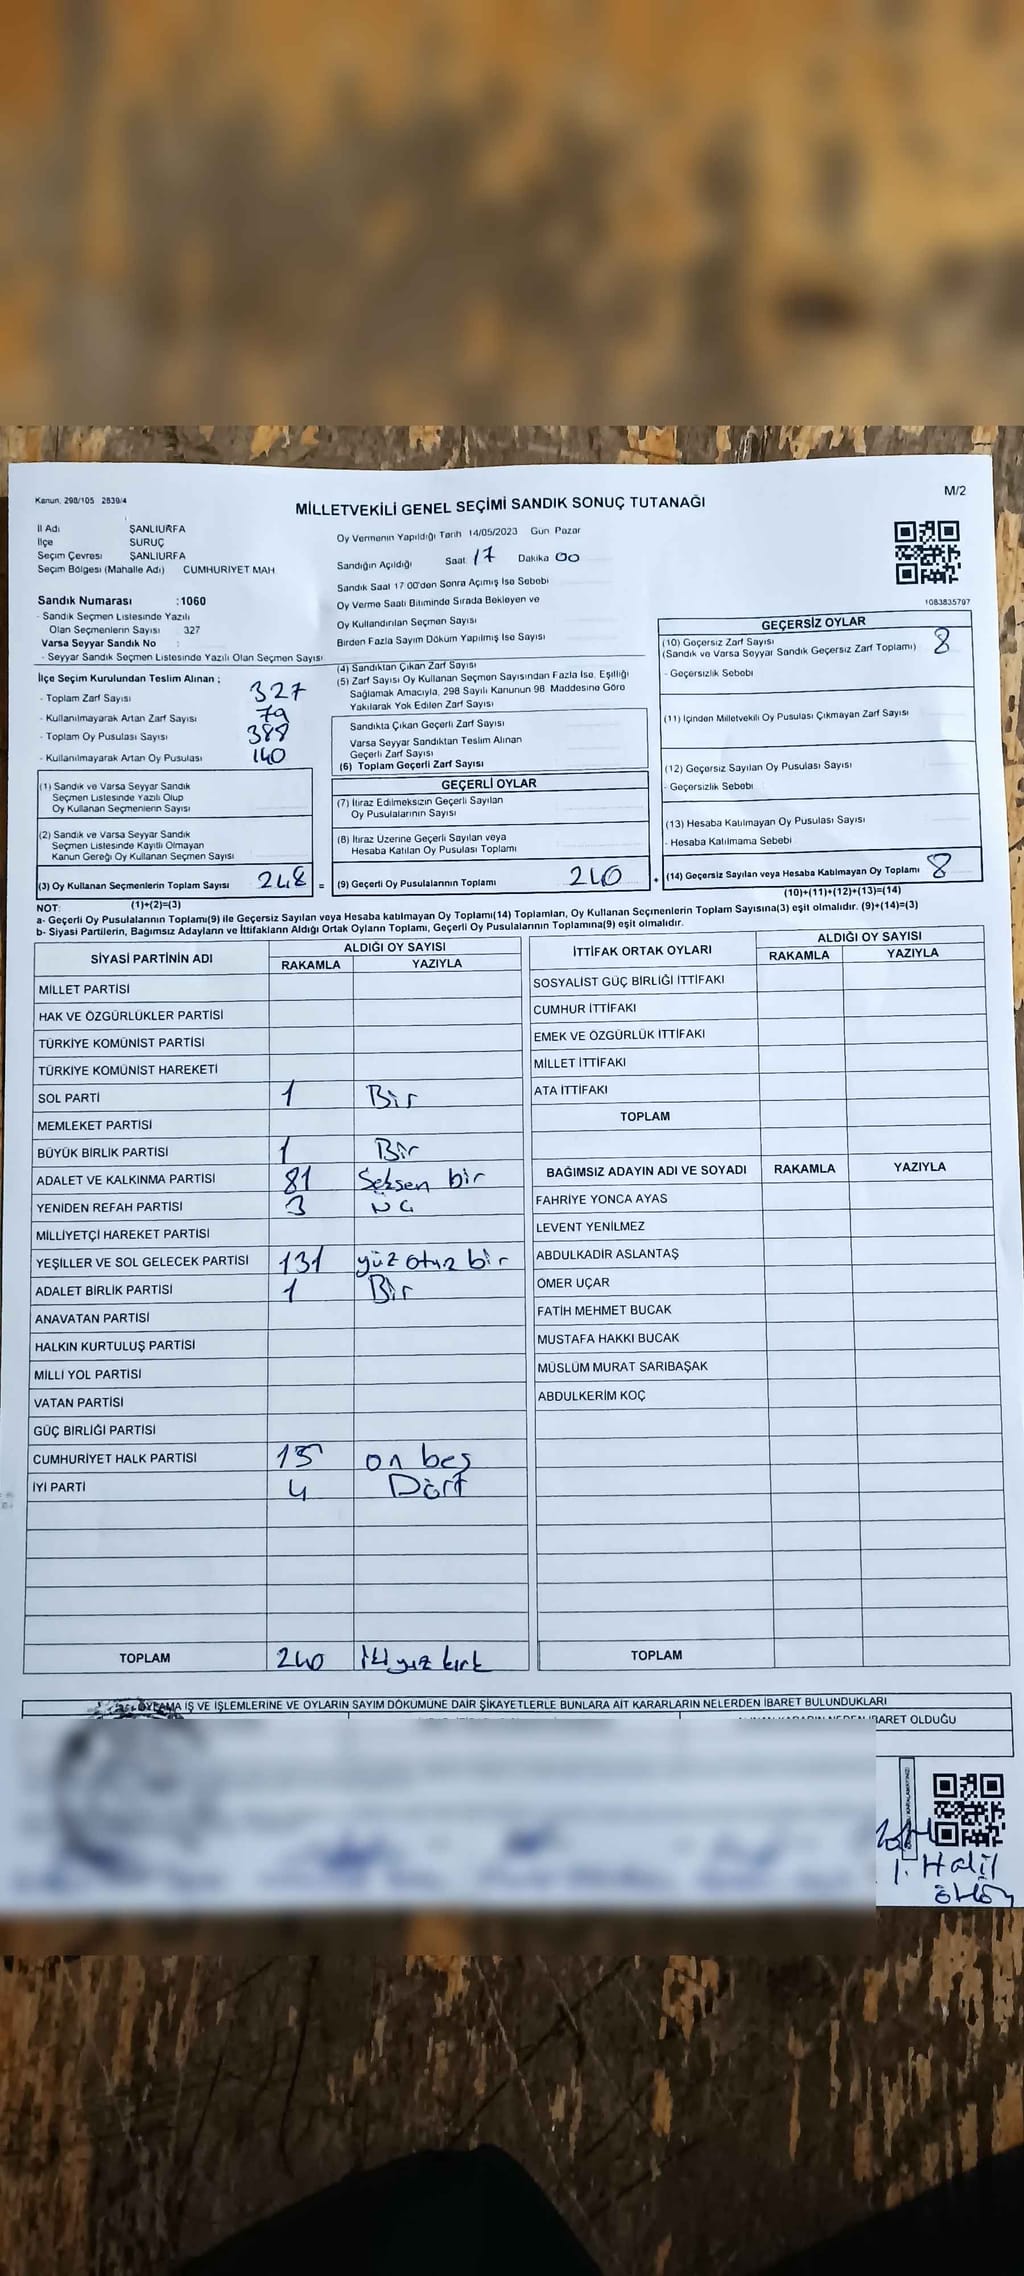 Kanun. 298/105 2839/4
M/2
MİLLETVEKİLİ GENEL SEÇİMİ SANDIK SONUÇ TUTANAĞI
İl Adı ŞANLIURFA
İlçe SURUÇ
Seçim Çevresi ŞANLIURFA
Seçim Bölgesi (Mahalle Adı) CUMHURİYET MAH
Sandık Numarası :1060
- Sandık Seçmen Listesinde Yazılı
Olan Seçmenlerin Sayısı 327
Varsa Seyyar Sandık No :
- Seyyar Sandık Seçmen Listesinde Yazılı Olan Seçmen Sayısı
Oy Vermenin Yapıldığı Tarih 14/05/2023 Gün Pazar
Sandığın Açıldığı Saat 17 Dakika 00
Sandık Saat 17 00'den Sonra Açımış İse Sebebi
Oy Verme Saati Bitiminde Sırada Bekleyen ve
Oy Kullandırılan Seçmen Sayısı
Birden Fazla Sayım Döküm Yapılmış İse Sayısı
1083835797
İlçe Seçim Kurulundan Teslim Alınan ;
- Toplam Zarf Sayısı 327
- Kullanılmayarak Artan Zarf Sayısı 79
- Toplam Oy Pusulası Sayısı 388
- Kullanılmayarak Artan Oy Pusulası 140
(1) Sandık ve Varsa Seyyar Sandık
Seçmen Listesinde Yazılı Olup
Oy Kullanan Seçmenlerin Sayısı
(2) Sandık ve Varsa Seyyar Sandık
Seçmen Listesinde Kayıtlı Olmayan
Kanun Gereği Oy Kullanan Seçmen Sayısı
(3) Oy Kullanan Seçmenlerin Toplam Sayısı 248 =
(1)+(2)=(3)
(4) Sandıktan Çıkan Zarf Sayısı
(5) Zarf Sayısı Oy Kullanan Seçmen Sayısından Fazla İse, Eşitliği
Sağlamak Amacıyla, 298 Sayılı Kanunun 98. Maddesine Göre
Yakılarak Yok Edilen Zarf Sayısı
Sandıkta Çıkan Geçerli Zarf Sayısı
Varsa Seyyar Sandıktan Teslim Alınan
Geçerli Zarf Sayısı
(6) Toplam Geçerli Zarf Sayısı
GEÇERLİ OYLAR
(7) İtiraz Edilmeksizin Geçerli Sayılan
Oy Pusulalarının Sayısı
(8) İtiraz Üzerine Geçerli Sayılan veya
Hesaba Katılan Oy Pusulası Toplamı
(9) Geçerli Oy Pusulalarının Toplamı 240 +
GEÇERSİZ OYLAR
(10) Geçersiz Zarf Sayısı 8
(Sandık ve Varsa Seyyar Sandık Geçersiz Zarf Toplamı)
- Geçersizlik Sebebi
(11) İçinden Milletvekili Oy Pusulası Çıkmayan Zarf Sayısı
(12) Geçersiz Sayılan Oy Pusulası Sayısı
- Geçersizlik Sebebi
(13) Hesaba Katılmayan Oy Pusulası Sayısı
- Hesaba Katılmama Sebebi
(14) Geçersiz Sayılan veya Hesaba Katılmayan Oy Toplamı 8
(10)+(11)+(12)+(13)=(14)
NOT:
a- Geçerli Oy Pusulalarının Toplamı(9) ile Geçersiz Sayılan veya Hesaba katılmayan Oy Toplamı(14) Toplamları, Oy Kullanan Seçmenlerin Toplam Sayısına(3) eşit olmalıdır. (9)+(14)=(3)
b- Siyasi Partilerin, Bağımsız Adayların ve İttifakların Aldığı Ortak Oyların Toplamı, Geçerli Oy Pusulalarının Toplamına(9) eşit olmalıdır.
SİYASİ PARTİNİN ADI ALDIĞI OY SAYISI
RAKAMLA YAZIYLA
MİLLET PARTİSİ
HAK VE ÖZGÜRLÜKLER PARTİSİ
TÜRKİYE KOMÜNİST PARTİSİ
TÜRKİYE KOMÜNİST HAREKETİ
SOL PARTİ 1 Bir
MEMLEKET PARTİSİ
BÜYÜK BİRLİK PARTİSİ 1 Bir
ADALET VE KALKINMA PARTİSİ 81 Seksen bir
YENİDEN REFAH PARTİSİ 3 üç
MİLLİYETÇİ HAREKET PARTİSİ
YEŞİLLER VE SOL GELECEK PARTİSİ 131 yüz otuz bir
ADALET BİRLİK PARTİSİ 1 Bir
ANAVATAN PARTİSİ
HALKIN KURTULUŞ PARTİSİ
MİLLİ YOL PARTİSİ
VATAN PARTİSİ
GÜÇ BİRLİĞİ PARTİSİ
CUMHURİYET HALK PARTİSİ 15 on beş
İYİ PARTİ 4 Dört
TOPLAM 240 iki yüz kırk
İTTİFAK ORTAK OYLARI ALDIĞI OY SAYISI
RAKAMLA YAZIYLA
SOSYALİST GÜÇ BİRLİĞİ İTTİFAKI
CUMHUR İTTİFAKI
EMEK VE ÖZGÜRLÜK İTTİFAKI
MİLLET İTTİFAKI
ATA İTTİFAKI
TOPLAM
BAĞIMSIZ ADAYIN ADI VE SOYADI RAKAMLA YAZIYLA
FAHRİYE YONCA AYAS
LEVENT YENİLMEZ
ABDULKADİR ASLANTAŞ
ÖMER UÇAR
FATİH MEHMET BUCAK
MUSTAFA HAKKI BUCAK
MÜSLÜM MURAT SARIBAŞAK
ABDULKERİM KOÇ
TOPLAM
OYLAMA İŞ VE İŞLEMLERİNE VE OYLARIN SAYIM DÖKÜMÜNE DAİR ŞİKAYETLERLE BUNLARA AİT KARARLARIN NELERDEN İBARET BULUNDUKLARI
ALINAN KARARIN NEDEN İBARET OLDUĞU
İ. Halil